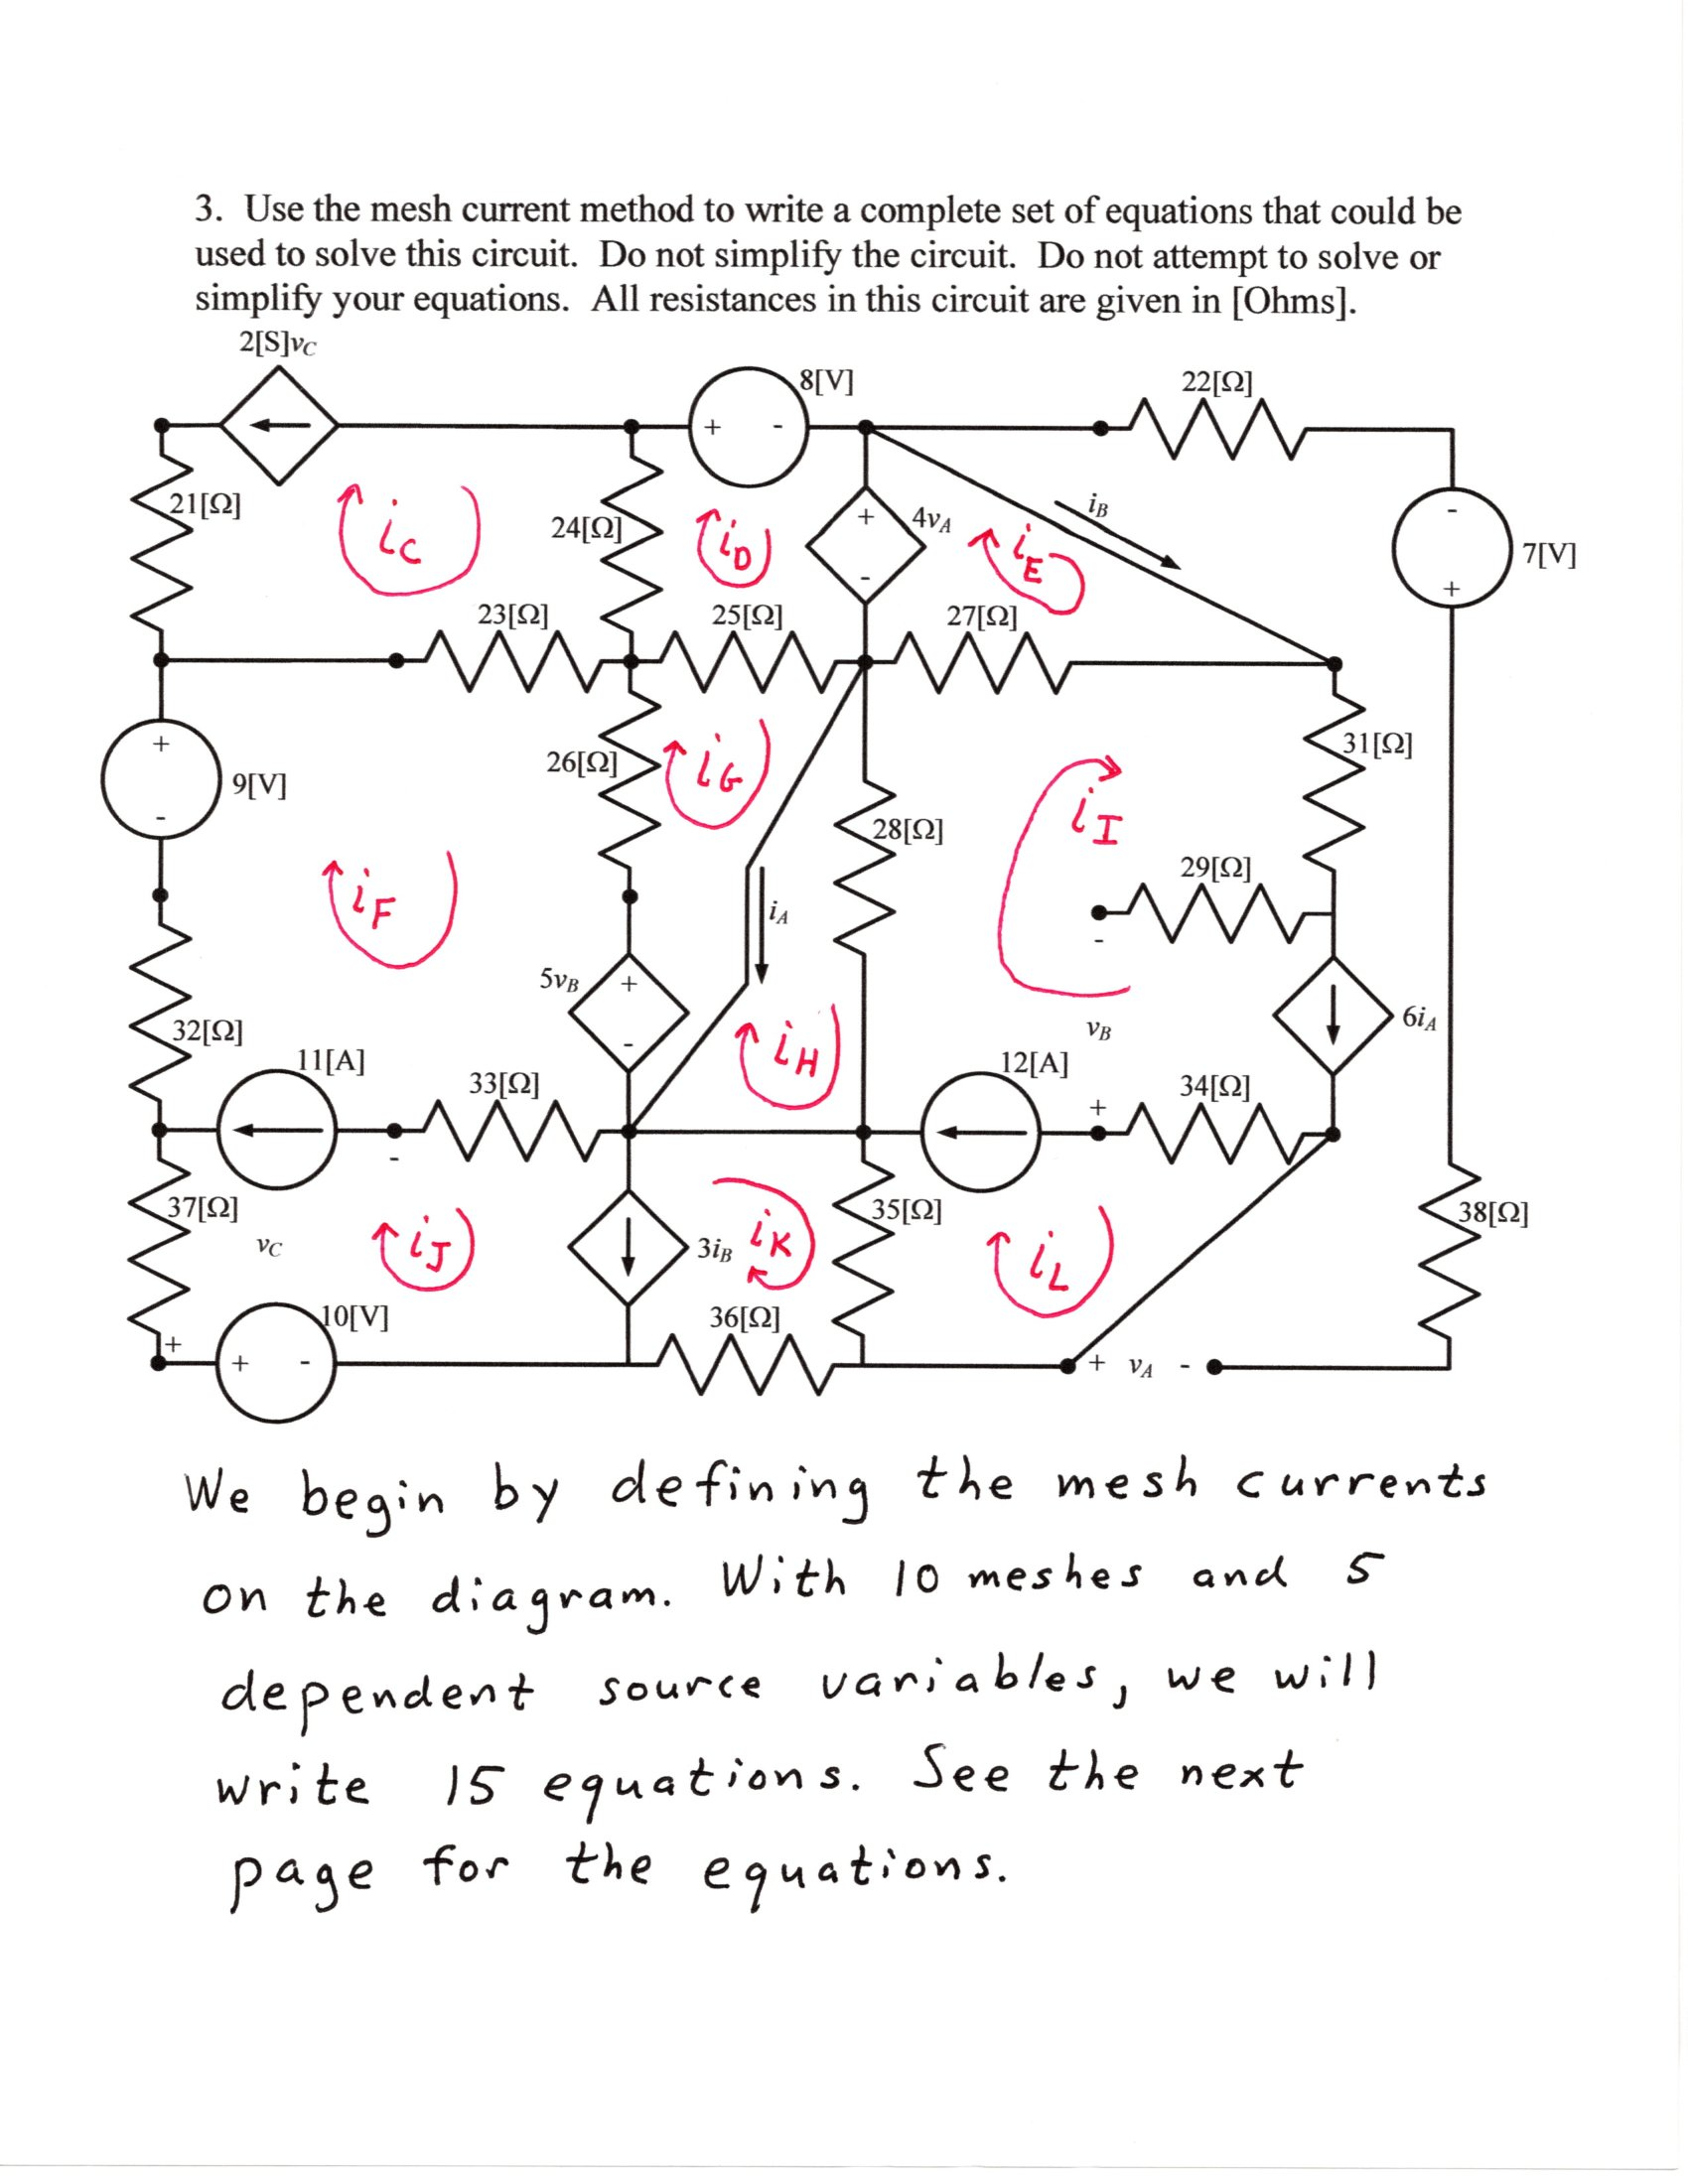 3. Use the mesh current method to write a complete set of equations that could be
used to solve this circuit. Do not simplify the circuit. Do not attempt to solve or
simplify your equations. All resistances in this circuit are given in [Ohms].
2[S]vC
8[V]
22[Ω]
+ -
21[Ω]
iC
24[Ω]
iD
+
4vA
-
iE
iB
-
7[V]
+
23[Ω]
25[Ω]
27[Ω]
+
9[V]
-
26[Ω]
iG
28[Ω]
iI
31[Ω]
29[Ω]
-
iF
iA
5vB
+
-
32[Ω]
11[A]
33[Ω]
iH
vB
12[A]
+
34[Ω]
6iA
-
37[Ω]
vC
iJ
3iB
iK
35[Ω]
iL
38[Ω]
+
10[V]
+ -
36[Ω]
+ vA -
We begin by defining the mesh currents
on the diagram. With 10 meshes and 5
dependent source variables, we will
write 15 equations. See the next
page for the equations.